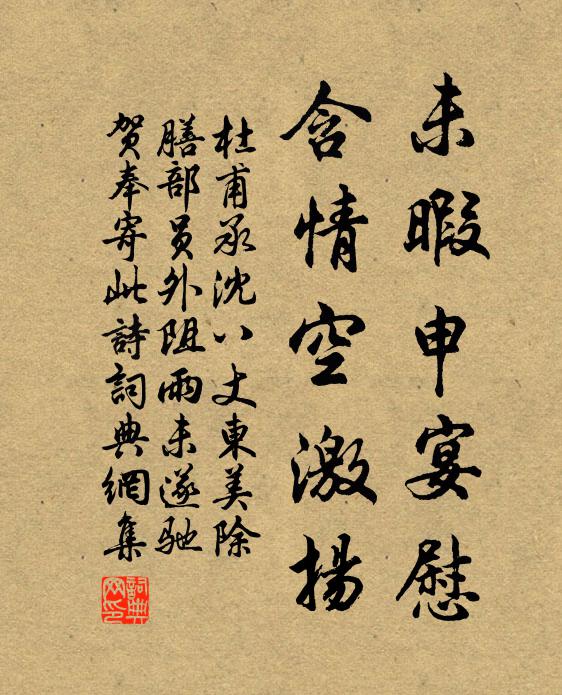 未暇申宴慰
含情空激揚
杜甫承沈八丈東美除
膳部員外阻雨未遂馳
賀奉寄此詩詞典網集